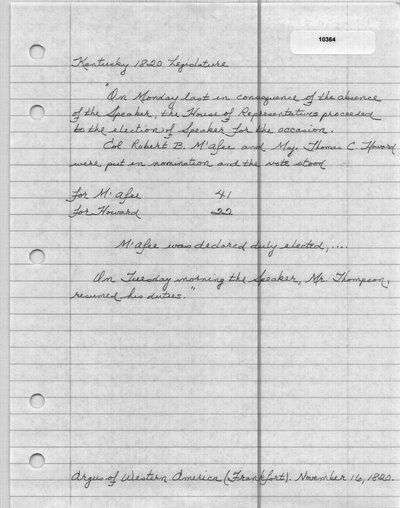 10364
Kentucky 1820 Legislature
"On Monday last in consequence of the absence
of the Speaker, the House of Representatives proceeded
to the election of Speaker for the occasion.
Col Robert B. M'Afee and Maj. Thomas C. Howard
were put in nomination and the vote stood
For M'Afee 41
For Howard 22
M'Afee was declared duly elected,....
On Tuesday morning the Speaker, Mr. Thompson,
resumed his duties."
Argus of Western America (Frankfort). November 16, 1820.